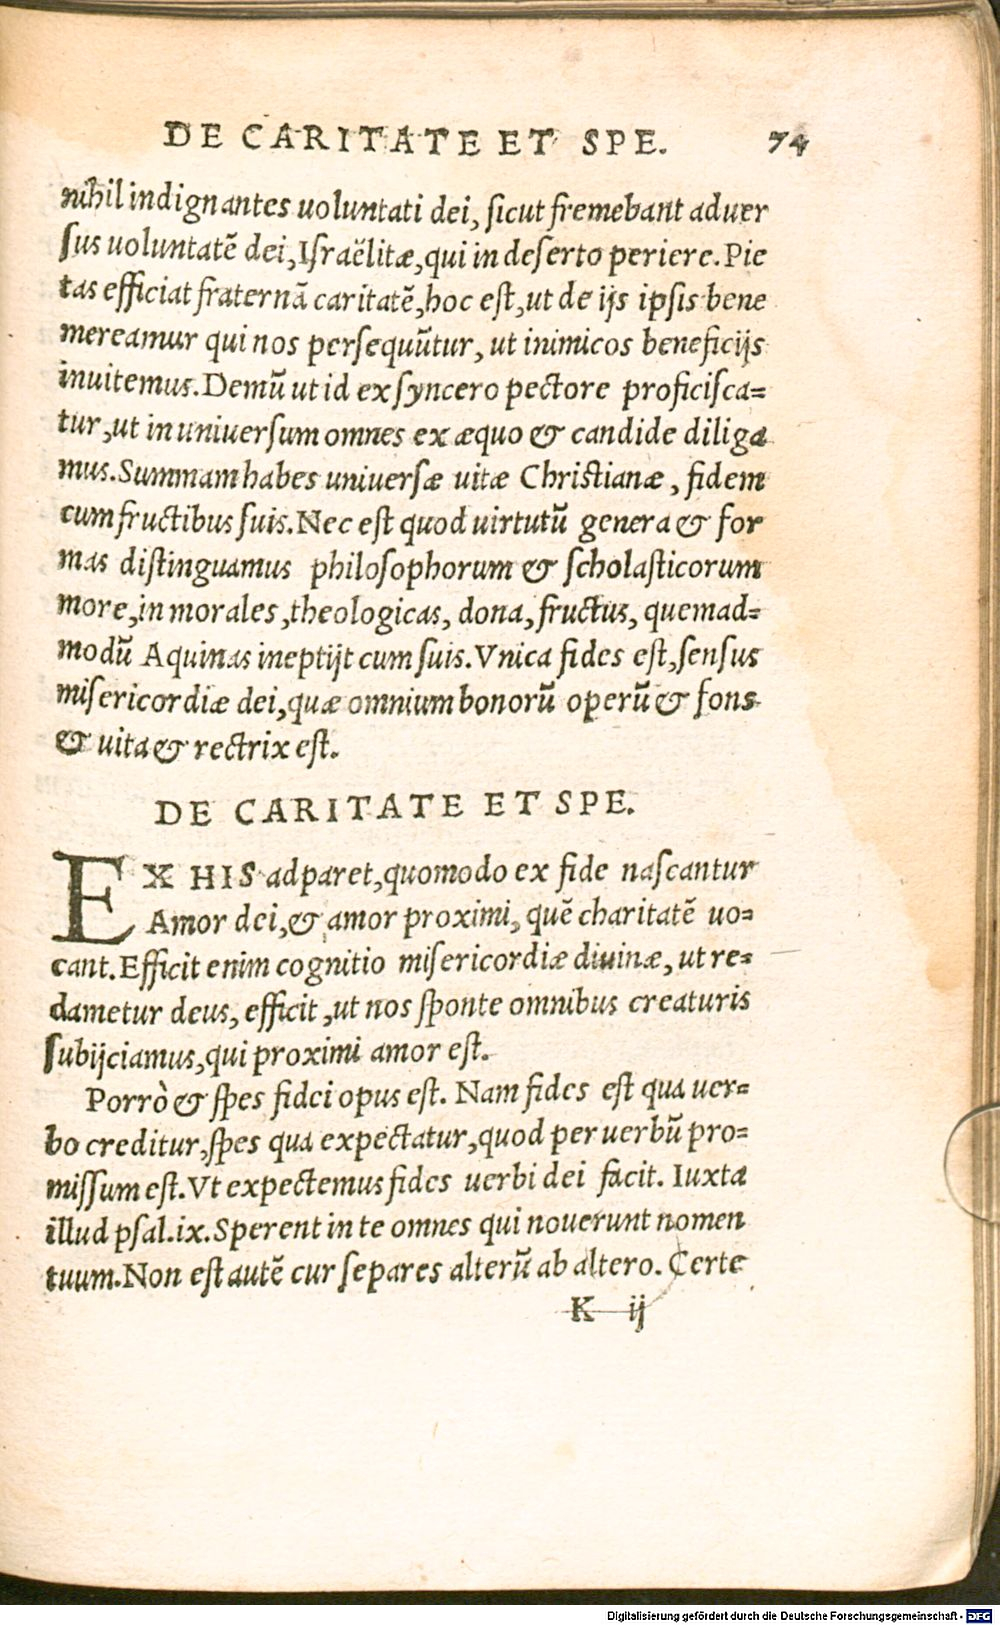 DE CARITATE ET SPE. 74
nihil indignantes uoluntati dei, ſicut fremebant aduer
ſus uoluntatē dei, Iſraëlitæ, qui in deſerto periere. Pie
tas efficiat fraternā caritatē, hoc eſt, ut de ijs ipſis bene
mereamur qui nos perſequūtur, ut inimicos beneficijs
inuitemus. Demū ut id ex ſyncero pectore proficiſca=
tur, ut in uniuerſum omnes ex æquo & candide diliga
mus. Summam habes uniuerſæ uitæ Chriſtianæ, fidem
cum fructibus ſuis. Nec eſt quod uirtutū genera & for
mas diſtinguamus philoſophorum & ſcholaſticorum
more, in morales, theologicas, dona, fructus, quemad=
modū Aquinas ineptijt cum ſuis. Vnica fides eſt, ſenſus
miſericordiæ dei, quæ omnium bonorū operū & fons
& uita & rectrix eſt.
DE CARITATE ET SPE.
EX HIS adparet, quomodo ex fide naſcantur
Amor dei, & amor proximi, quē charitatē uo=
cant. Efficit enim cognitio miſericordiæ diuinæ, ut re=
dametur deus, efficit, ut nos ſponte omnibus creaturis
ſubijciamus, qui proximi amor eſt.
Porrò & ſpes fidei opus eſt. Nam fides eſt qua uer=
bo creditur, ſpes qua expectatur, quod per uerbū pro=
miſſum eſt. Vt expectemus fides uerbi dei facit. Iuxta
illud pſal. ix. Sperent in te omnes qui nouerunt nomen
tuum. Non eſt autē cur ſepares alterū ab altero. Certe
K ij
Digitalisierung gefördert durch die Deutsche Forschungsgemeinschaft - DFG